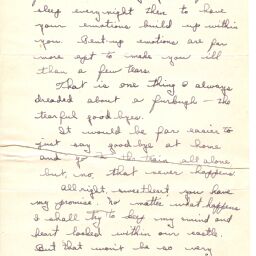 sleep every night then to have
your emotions build up within
you. Pent-up emotions are far
more apt to make you ill
than a few tears.
That is one thing I always
dreaded about a furlough – the
tearful good-byes.
It would be far easier to
just say good-bye at home
and go to the train all alone
but, no, that never happens.
All right, sweetheart you have
my promise. No matter what happens
I shall try to keep my mind and
heart locked within our castle.
But that won't be so very